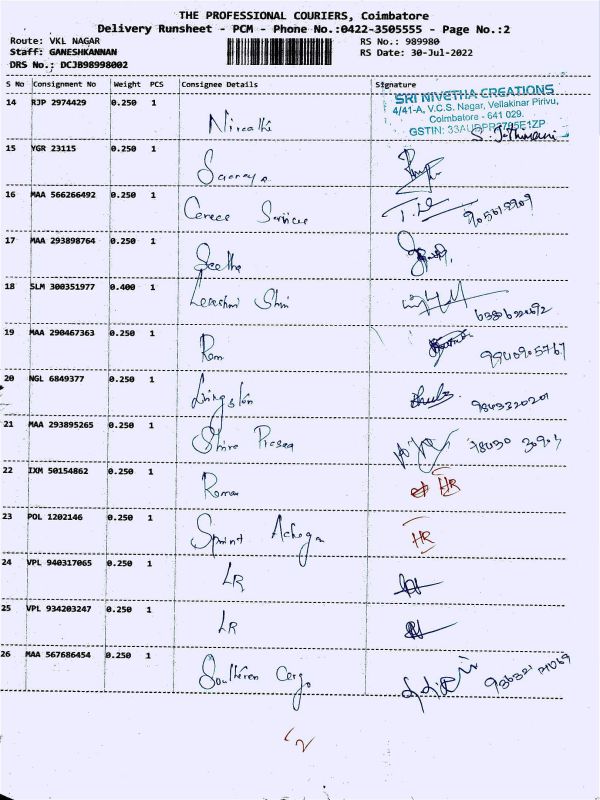 THE PROFESSIONAL COURIERS, Coimbatore
Delivery Runsheet - PCM - Phone No.:0422-3505555 - Page No.:2
Route: VKL NAGAR RS No.: 989980
Staff: GANESHKANNAN RS Date: 30-Jul-2022
DRS No.: DCJB98998002
S No Consignment No Weight PCS Consignee Details Signature
SRI NIVETHA CREATIONS
4/41-A, V.C.S. Nagar, Vellakinar Pirivu,
Coimbatore - 641 029.
GSTIN:
14 RJP 2974429 0.250 1
15 YGR 23115 0.250 1
16 MAA 566266492 0.250 1 Services
17 MAA 293898764 0.250 1 Seetha
18 SLM 300351977 0.400 1
19 MAA 290467363 0.250 1 Ram 9940905767
20 NGL 6849377 0.250 1 Livingston 9843320201
21 MAA 293895265 0.250 1
22 IXM 50154862 0.250 1 HR
23 POL 1202146 0.250 1 Sprint HR
24 VPL 940317065 0.250 1 LR
25 VPL 934203247 0.250 1 LR
26 MAA 567686454 0.250 1 Southeren Cargo